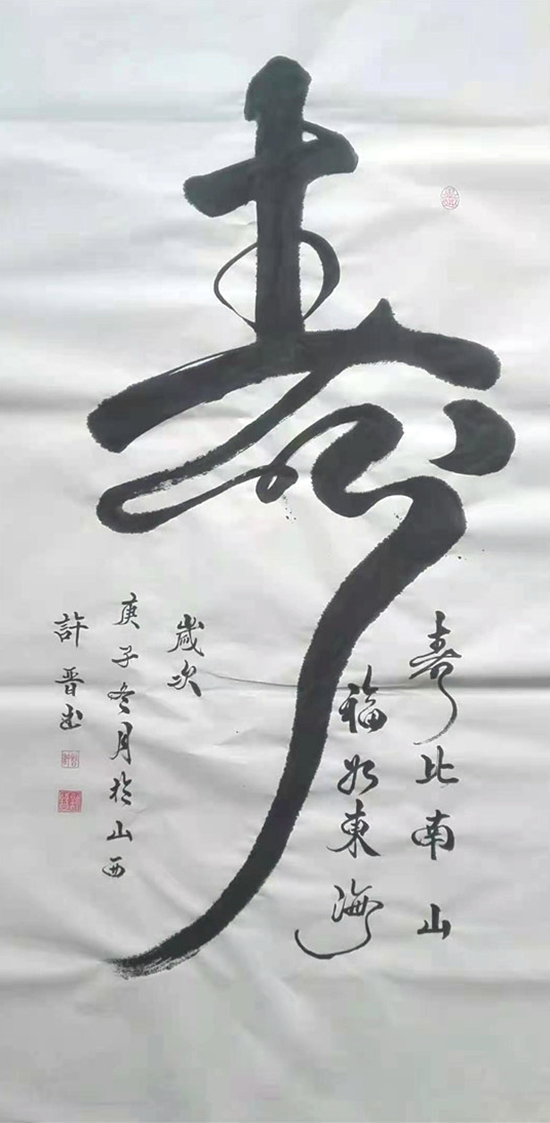 壽
壽比南山
福如東海
歲次
庚子冬月於山西
許晉書